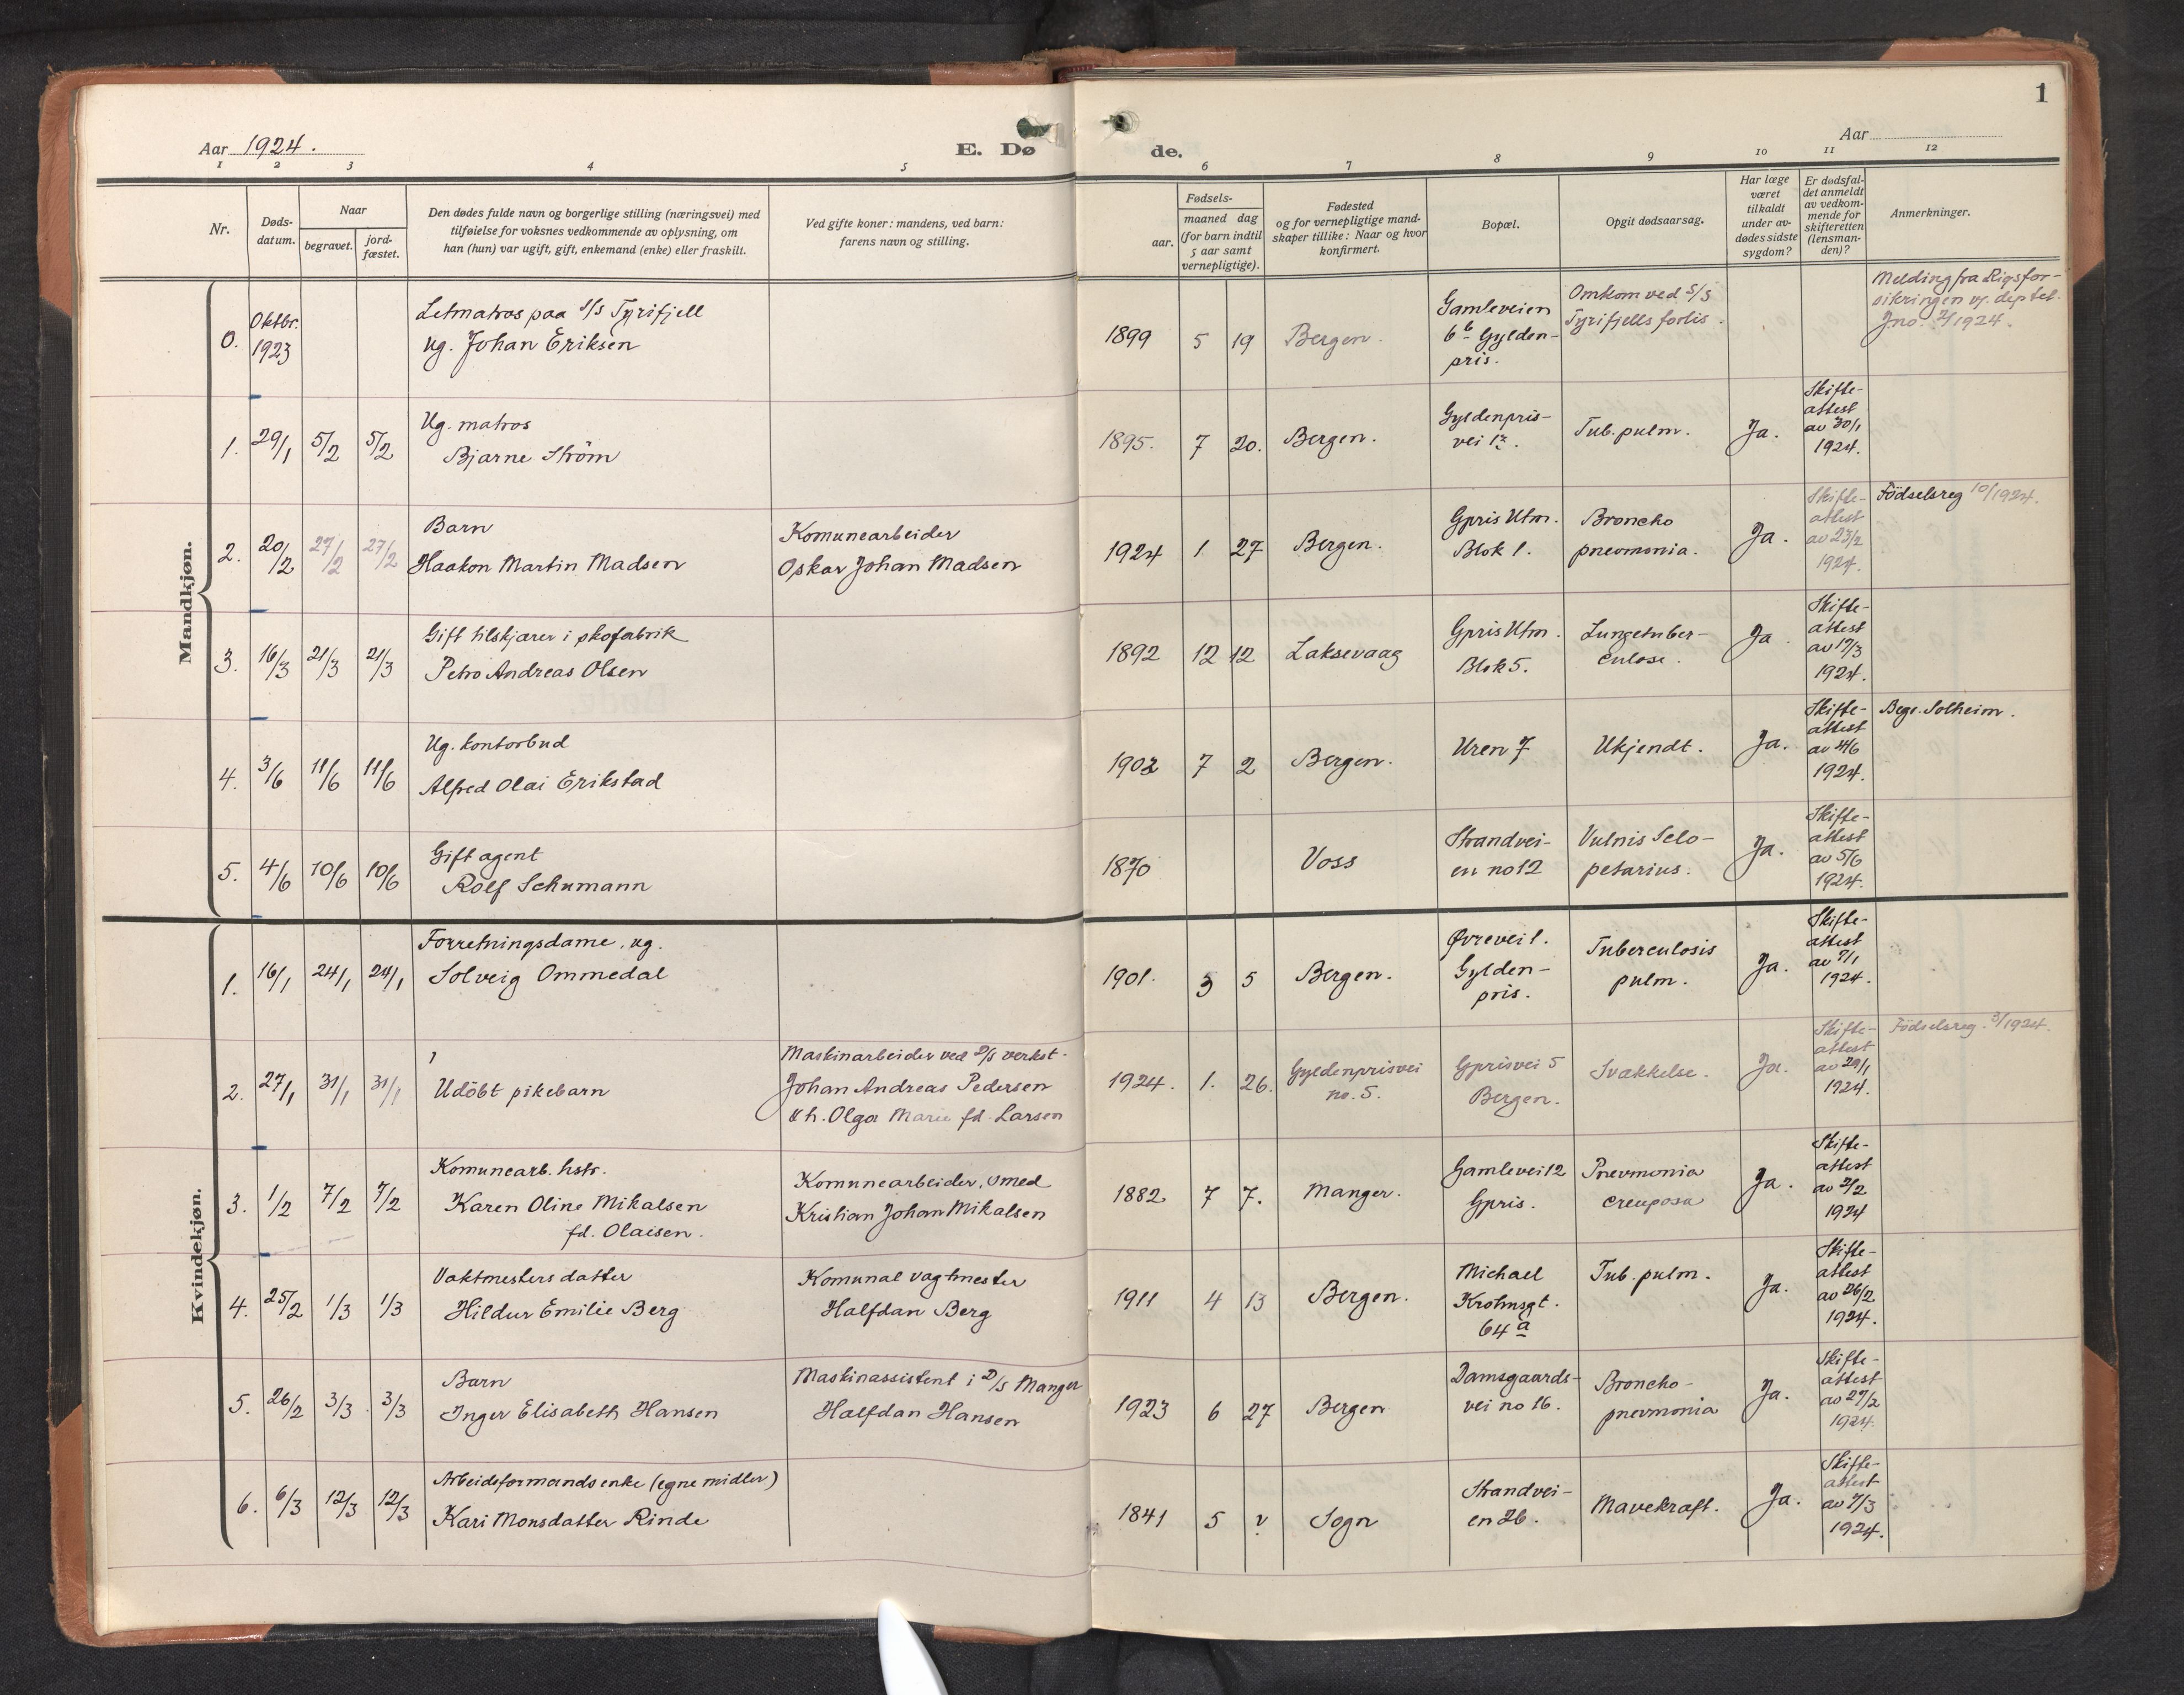 1
Aar 1924.
E. Dø
de.
Aar
1 2 3 4 5 6 7 8 9 10 11 12
Nr.
Døds-
datum.
Naar
begravet.
jord-
fæstet.
Den dødes fulde navn og borgerlige stilling (næringsvei) med
tilføielse for voksnes vedkommende av oplysning, om
han (hun) var ugift, gift, enkemand (enke) eller fraskilt.
Ved gifte koner: mandens, ved barn:
farens navn og stilling.
Fødsels-
aar.
maaned dag
(for barn indtil
5 aar samt
vernepligtige).
Fødested
og for vernepligtige mand-
skaper tillike: Naar og hvor
konfirmert.
Bopæl.
Opgit dødsaarsag.
Har læge
været
tilkaldt
under av-
dødes sidste
sygdom?
Er dødsfal-
det anmeldt
av vedkom-
mende for
skifteretten
(lensman-
den)?
Anmerkninger.
Mandkjøn.
0.
Oktbr.
1923
Letmatros paa s/s Tyrifjell
ug. Johan Eriksen
1899 5 19
Bergen.
Gamleveien
6b Gylden-
pris.
Omkom ved S/S
Tyrifjells forlis.
Melding fra Rigsfor-
sikringen
Jno. 2/1924.
1. 29/1 5/2 5/2
Ug. matros
Bjarne Ström
1895. 7 20.
Bergen.
Gyldenpris-
vei
Tub. pulm.
Ja.
Skifte-
attest
av 30/1
1924.
2. 20/2 27/2 27/2
Barn
Haakon Martin Madsen
Komunearbeider
Oskar Johan Madsen
1924 1 27
Bergen.
Gpris Utm.
Blok 1.
Broncho
pneomonia.
Ja.
Skifte-
attest
av 23/2
1924.
Födselsreg 10/1924.
3. 16/3 21/3 21/3
Gift tilskjærer i skofabrik
Petro Andreas Olsen
1892 12 12
Laksevaag
Gpris Utm.
Blok 5.
Lungetuber-
culose.
Ja
Skifte-
attest
av 17/3
1924.
4. 3/6 11/6 11/6
Ug. kontorbud
Alfred Olai Erikstad
1902 7 2
Bergen.
Uren 7
Ukjendt.
Ja.
Skifte-
attest
av 4/6
1924.
Begr. Solheim.
5. 4/6 10/6 10/6
Gift agent
Rolf Schumann
1870
Voss
Strandvei-
en no 12
Vulnis Sclo-
petarius.
Ja.
Skifte-
attest
av 5/6
1924.
Kvindekjøn.
1. 16/1 24/1 24/1
Forretningsdame, ug.
Solveig Ommedal
1901. 3 5
Bergen.
Øvrevei 1.
Gylden-
pris.
Tuberculosis
pulm.
Ja.
Skifte-
attest
1924.
2. 27/1 31/1 31/1
Udöbt pikebarn
Maskinarbeider ved D/S verkst.
Johan Andreas Pedersen
o h. Olga Marie fd. Larsen
1924. 1. 26.
Gyldenprisvei
no. 5.
Gprisvei 5
Bergen.
Svakkelse.
Ja.
Skifte-
attest
av 29/1
1924.
Födselsreg. 3/1924.
3. 1/2 7/2 7/2
Komunearb. hstr.
Karen Oline Mikalsen
fd. Olaisen.
Komunearbeider, smed
Kristian Johan Mikalsen
1882 7 7.
Manger.
Gamlevei 12
Gpris.
Pnevmonia
creuposa
Ja.
Skifte-
attest
av 2/2
1924
4. 25/2 1/3 1/3
Vaktmesters datter
Hildur Emilie Berg
Komunal vagtmester
Halfdan Berg
1911 4 13
Bergen.
Michael
Krohnsgt.
64 a
Tub. pulm.
Ja.
Skifte-
attest
av 26/2
1924.
5. 26/2 3/3 3/3
Barn
Inger Elisabeth Hansen
Maskinassistent i D/S Manger
Halfdan Hansen
1923 6 27
Bergen
Damsgaards-
vei no 16.
Broncho-
pnevmonia
Ja.
Skifte-
attest
av 27/2
1924.
6. 6/3 12/3 12/3
Arbeidsformands enke (egne midler)
Kari Monsdatter Rinde
1841 5 ?
Sogn
Strandvei-
en 26.
Mavekraft.
Ja.
Skifte-
attest
av 7/3
1924.